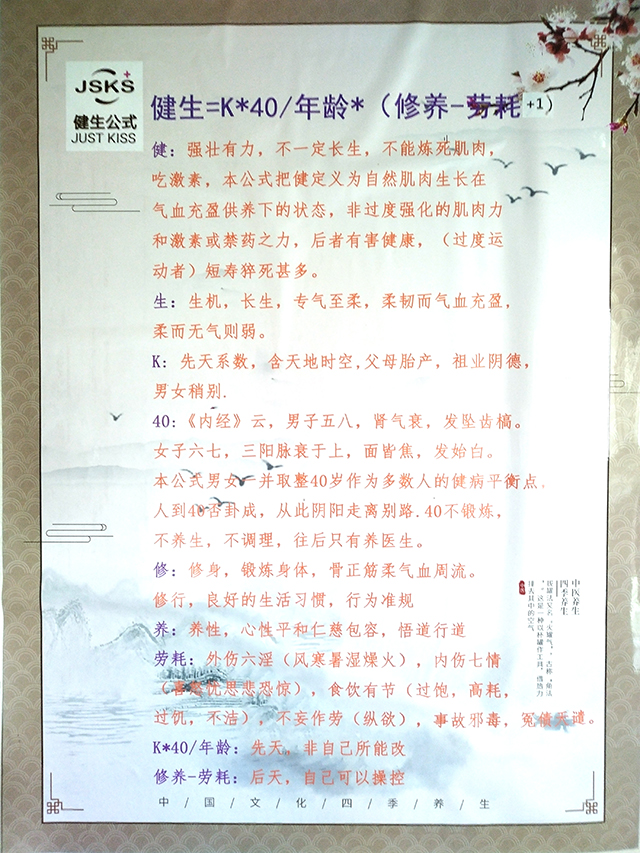 JSKS
健生公式
JUST KISS
健生=K*40/年龄*（修养-劳耗+1）
健：强壮有力，不一定长生，不能炼死肌肉，
吃激素，本公式把健定义为自然肌肉生长在
气血充盈供养下的状态，非过度强化的肌肉力
和激素或禁药之力，后者有害健康，（过度运
动者）短寿猝死甚多。
生：生机，长生，专气至柔，柔韧而气血充盈，
柔而无气则弱。
K：先天系数，含天地时空,父母胎产，祖业阴德，
男女稍别.
40:《内经》云，男子五八，肾气衰，发坠齿槁。
女子六七，三阳脉衰于上，面皆焦，发始白。
本公式男女一并取整40岁作为多数人的健病平衡点，
人到40否卦成，从此阴阳走离别路.40不锻炼，
不养生，不调理，往后只有养医生。
修：修身，锻炼身体，骨正筋柔气血周流。
修行，良好的生活习惯，行为准规
养：养性，心性平和仁慈包容，悟道行道
劳耗：外伤六淫（风寒暑湿燥火），内伤七情
（喜怒忧思悲恐惊），食饮有节（过饱，高耗，
过饥，不洁），不妄作劳（纵欲），事故邪毒，冤债天谴。
K*40/年龄：先天，非自己所能改
修养-劳耗：后天，自己可以操控
中医养生
四季养生
中/国/文/化/四/季/养/生